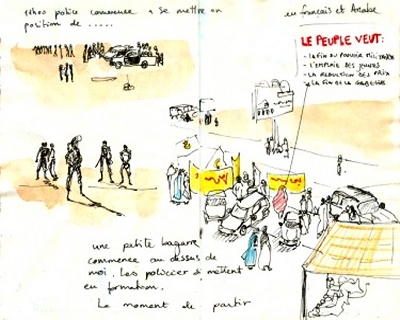 police commence à se mettre en
position de .....
en français et Arabe
LE PEUPLE VEUT:
- LA FIN DU POUVOIR MILITAIRE
- L'EMPLOIE DES JEUNES
- LA REDUCTION DES PRIX
- LA FIN DE LA
une petite bagarre
commence au dessus de
moi. Les policier se mettent
en formation.
Le moment de partir